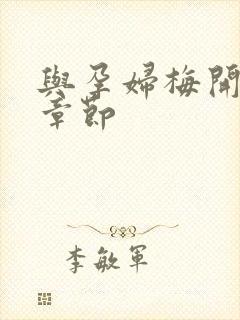 與孕婦梅開
章節
李敏軍